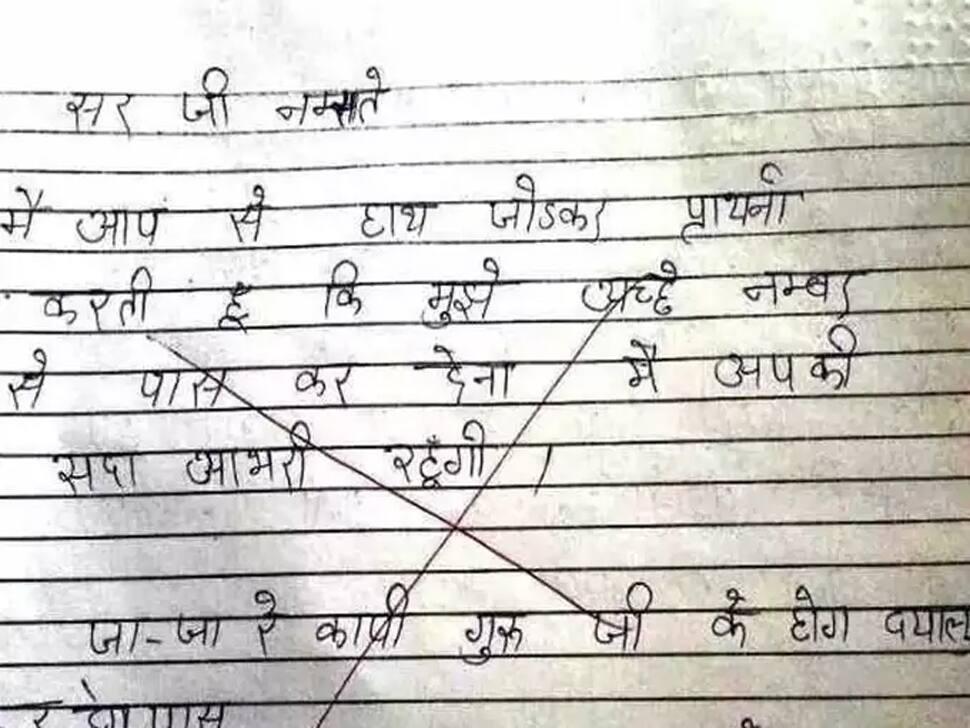 सर जी नमस्ते
मै आप से हाथ जोडकर प्राथर्ना
करती हू कि मुझे अच्छे नम्बर
से पास कर देना मै अपकी
सदा आभरी रहूँगी ।
जा-जा रे कापी गुरू जी के होग दयाल